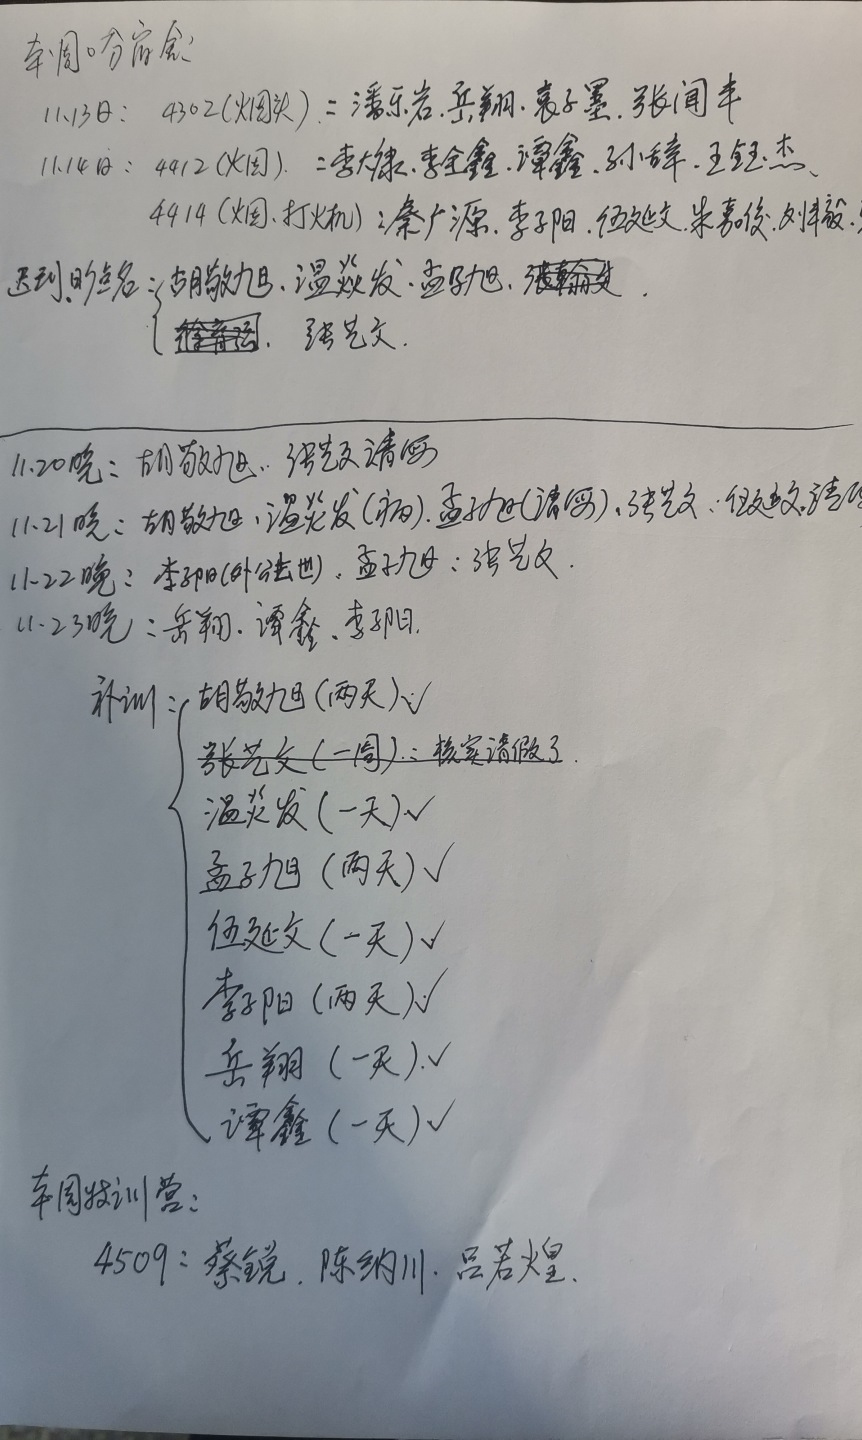 本周吸烟宿舍:
11.13日: 4302(烟头): 潘乐岩、岳翔、袁子墨、张闻丰
11.14日: 4412(烟): 李大康、李金鑫、谭鑫、孙小辞、王钰杰、
4414(烟、打火机): 秦广源、李子阳、伍延文、朱嘉俊、刘丰毅、
迟到、晚点名: 胡敬旭、温焱发、孟子旭、
张艺文.
11.20晚: 胡敬旭、张艺文请假
11.21晚: 胡敬旭、温炎发(病)、孟子旭(请假)、张艺文、伍延文请假
11.22晚: 李子阳(外公去世)、孟子旭、张艺文.
11.23晚: 岳翔、谭鑫、李子阳.
补训: 胡敬旭(两天)✓
张艺文(一周): 核实请假了.
温炎发(一天)✓
孟子旭(两天)✓
伍延文(一天)✓
李子阳(两天)✓
岳翔(一天)✓
谭鑫(一天)✓
本周特训营:
4509: 蔡锐、陈纳川、吕若煌.